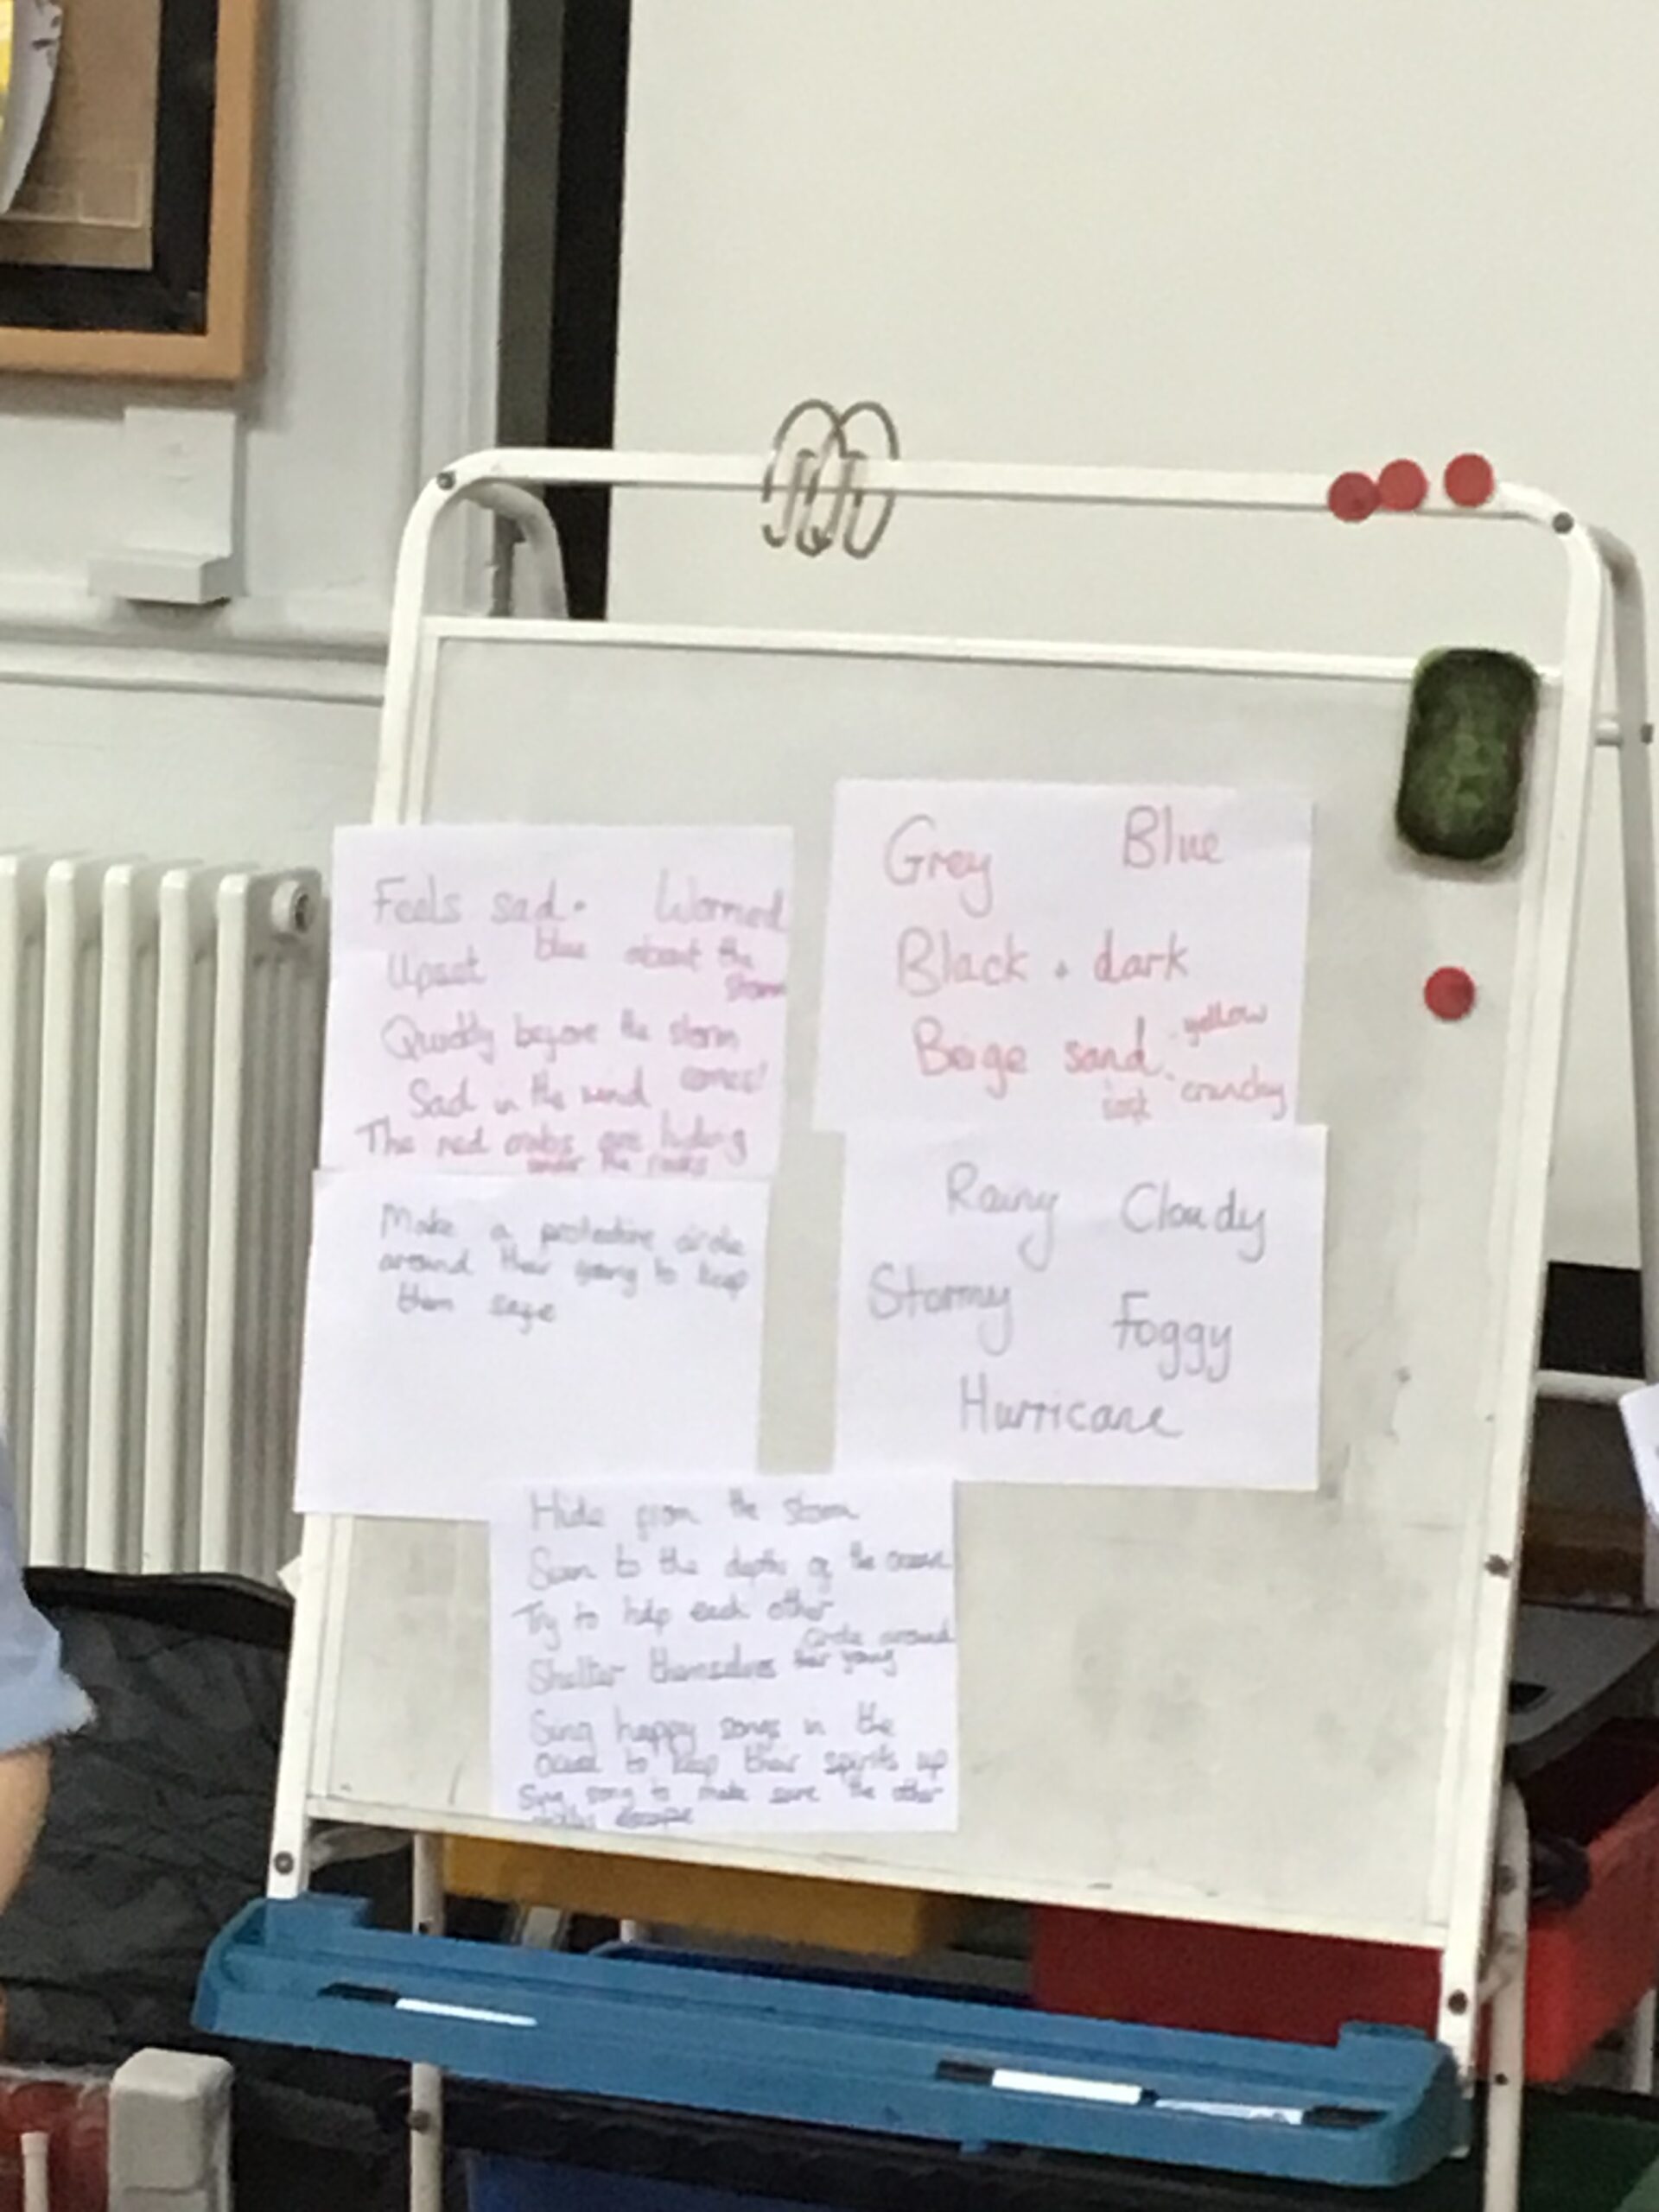 Feels sad. Worried
Upset blue about the
storm
Quickly before the storm
comes!
Sad in the wind
The red crabs are hiding
under the rocks
Grey Blue
Black . dark
Beige sand. yellow
crunchy
Make a protective circle
around their young to keep
them safe
Rainy Cloudy
Stormy Foggy
Hurricane
Hide from the storm
Swim to the depths of the ocean
Try to help each other
circle around
Shelter themselves their young
Sing happy songs in the
ocean to keep their spirits up
song to make sure the other